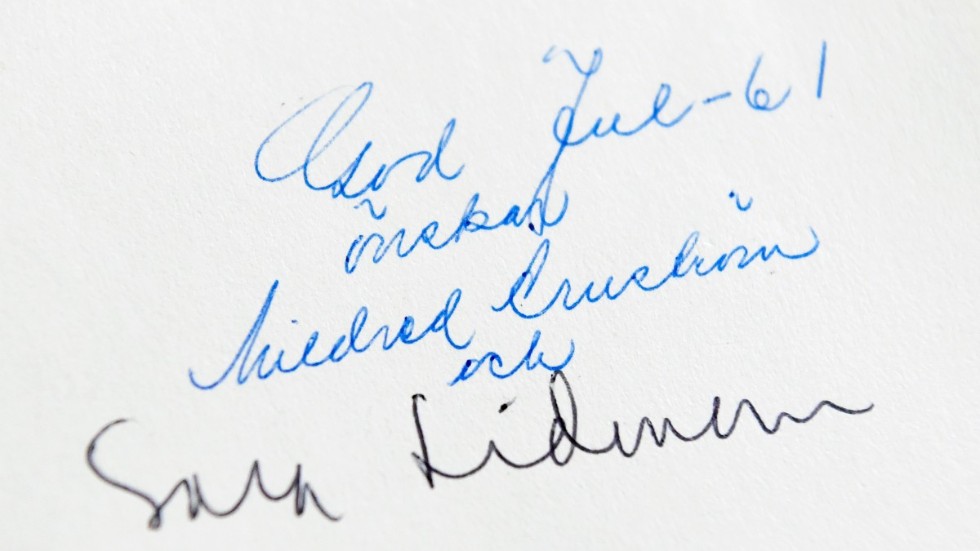 God Jul -61
önskar
Mildred Cruström
och
Sara Lidman